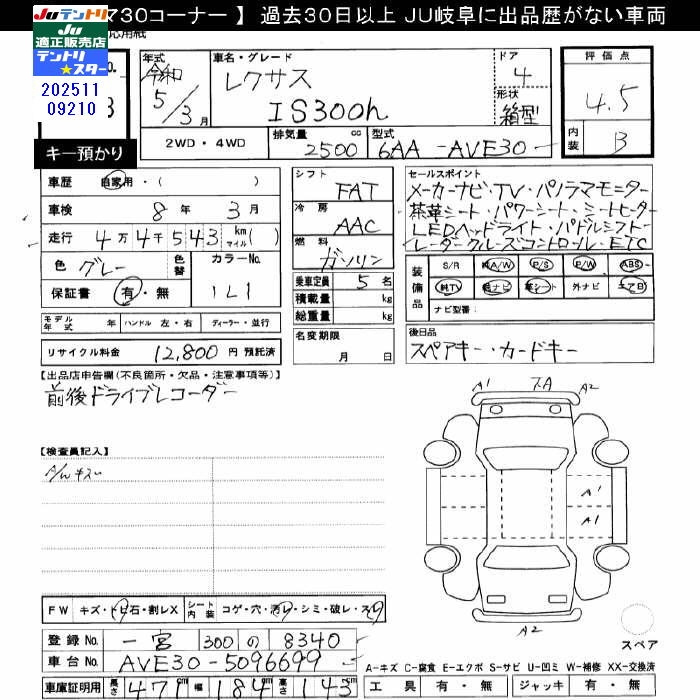 730コーナー 】 過去30日以上 JU岐阜に出品歴がない車両
Juテントリ
Ju
適正販売店
テントリ
★スター
202511
09210
キー預かり
年式 令和 5/3月
車名・グレード レクサス IS300h
ドア 4
形状 箱型
評価点 4.5
内装 B
2WD・4WD
排気量 2500 cc
型式 6AA -AVE30-
車歴 自家用・( )
車検 8年 3月
走行 4万4千543 km マイル( )
色 グレー
色替
カラーNo. 1L1
保証書 有・無
モデル年式 年 ハンドル 左・右 ディーラー・並行
リサイクル料金 12,800円 預託済
シフト FAT
冷房 AAC
燃料 ガソリン
乗車定員 5名
積載量 kg
総重量 kg
名変期限 月 日
セールスポイント
メーカーナビ・TV・パノラマモニター
茶革シート・パワーシート・シートヒーター
LEDヘッドライト・パドルシフト
レーダークルーズコントロール・ETC
装備品 S/R 純A/W P/S P/W ABS
純TV 純ナビ 革シート 外ナビ エアB
ナビ型番:
後日品
スペアキー・カードキー
【出品店申告欄(不良箇所・欠品・注意事項等)】
前後ドライブレコーダー
【検査員記入】
A1 スA A2
A1
A1
A2
スペア
FW キズ・トビ石・割レX シート内装 コゲ・穴・汚レ・シミ・破レ・スレ
登録No. 一宮 300 の 8340
車台No. AVE30-5096699
車庫証明用 長さ 471cm 幅 184cm 高さ 143cm
A-キズ C-腐食 E-エクボ S-サビ U-凹ミ W-補修 XX-交換済
工具 有・無 ジャッキ 有・無